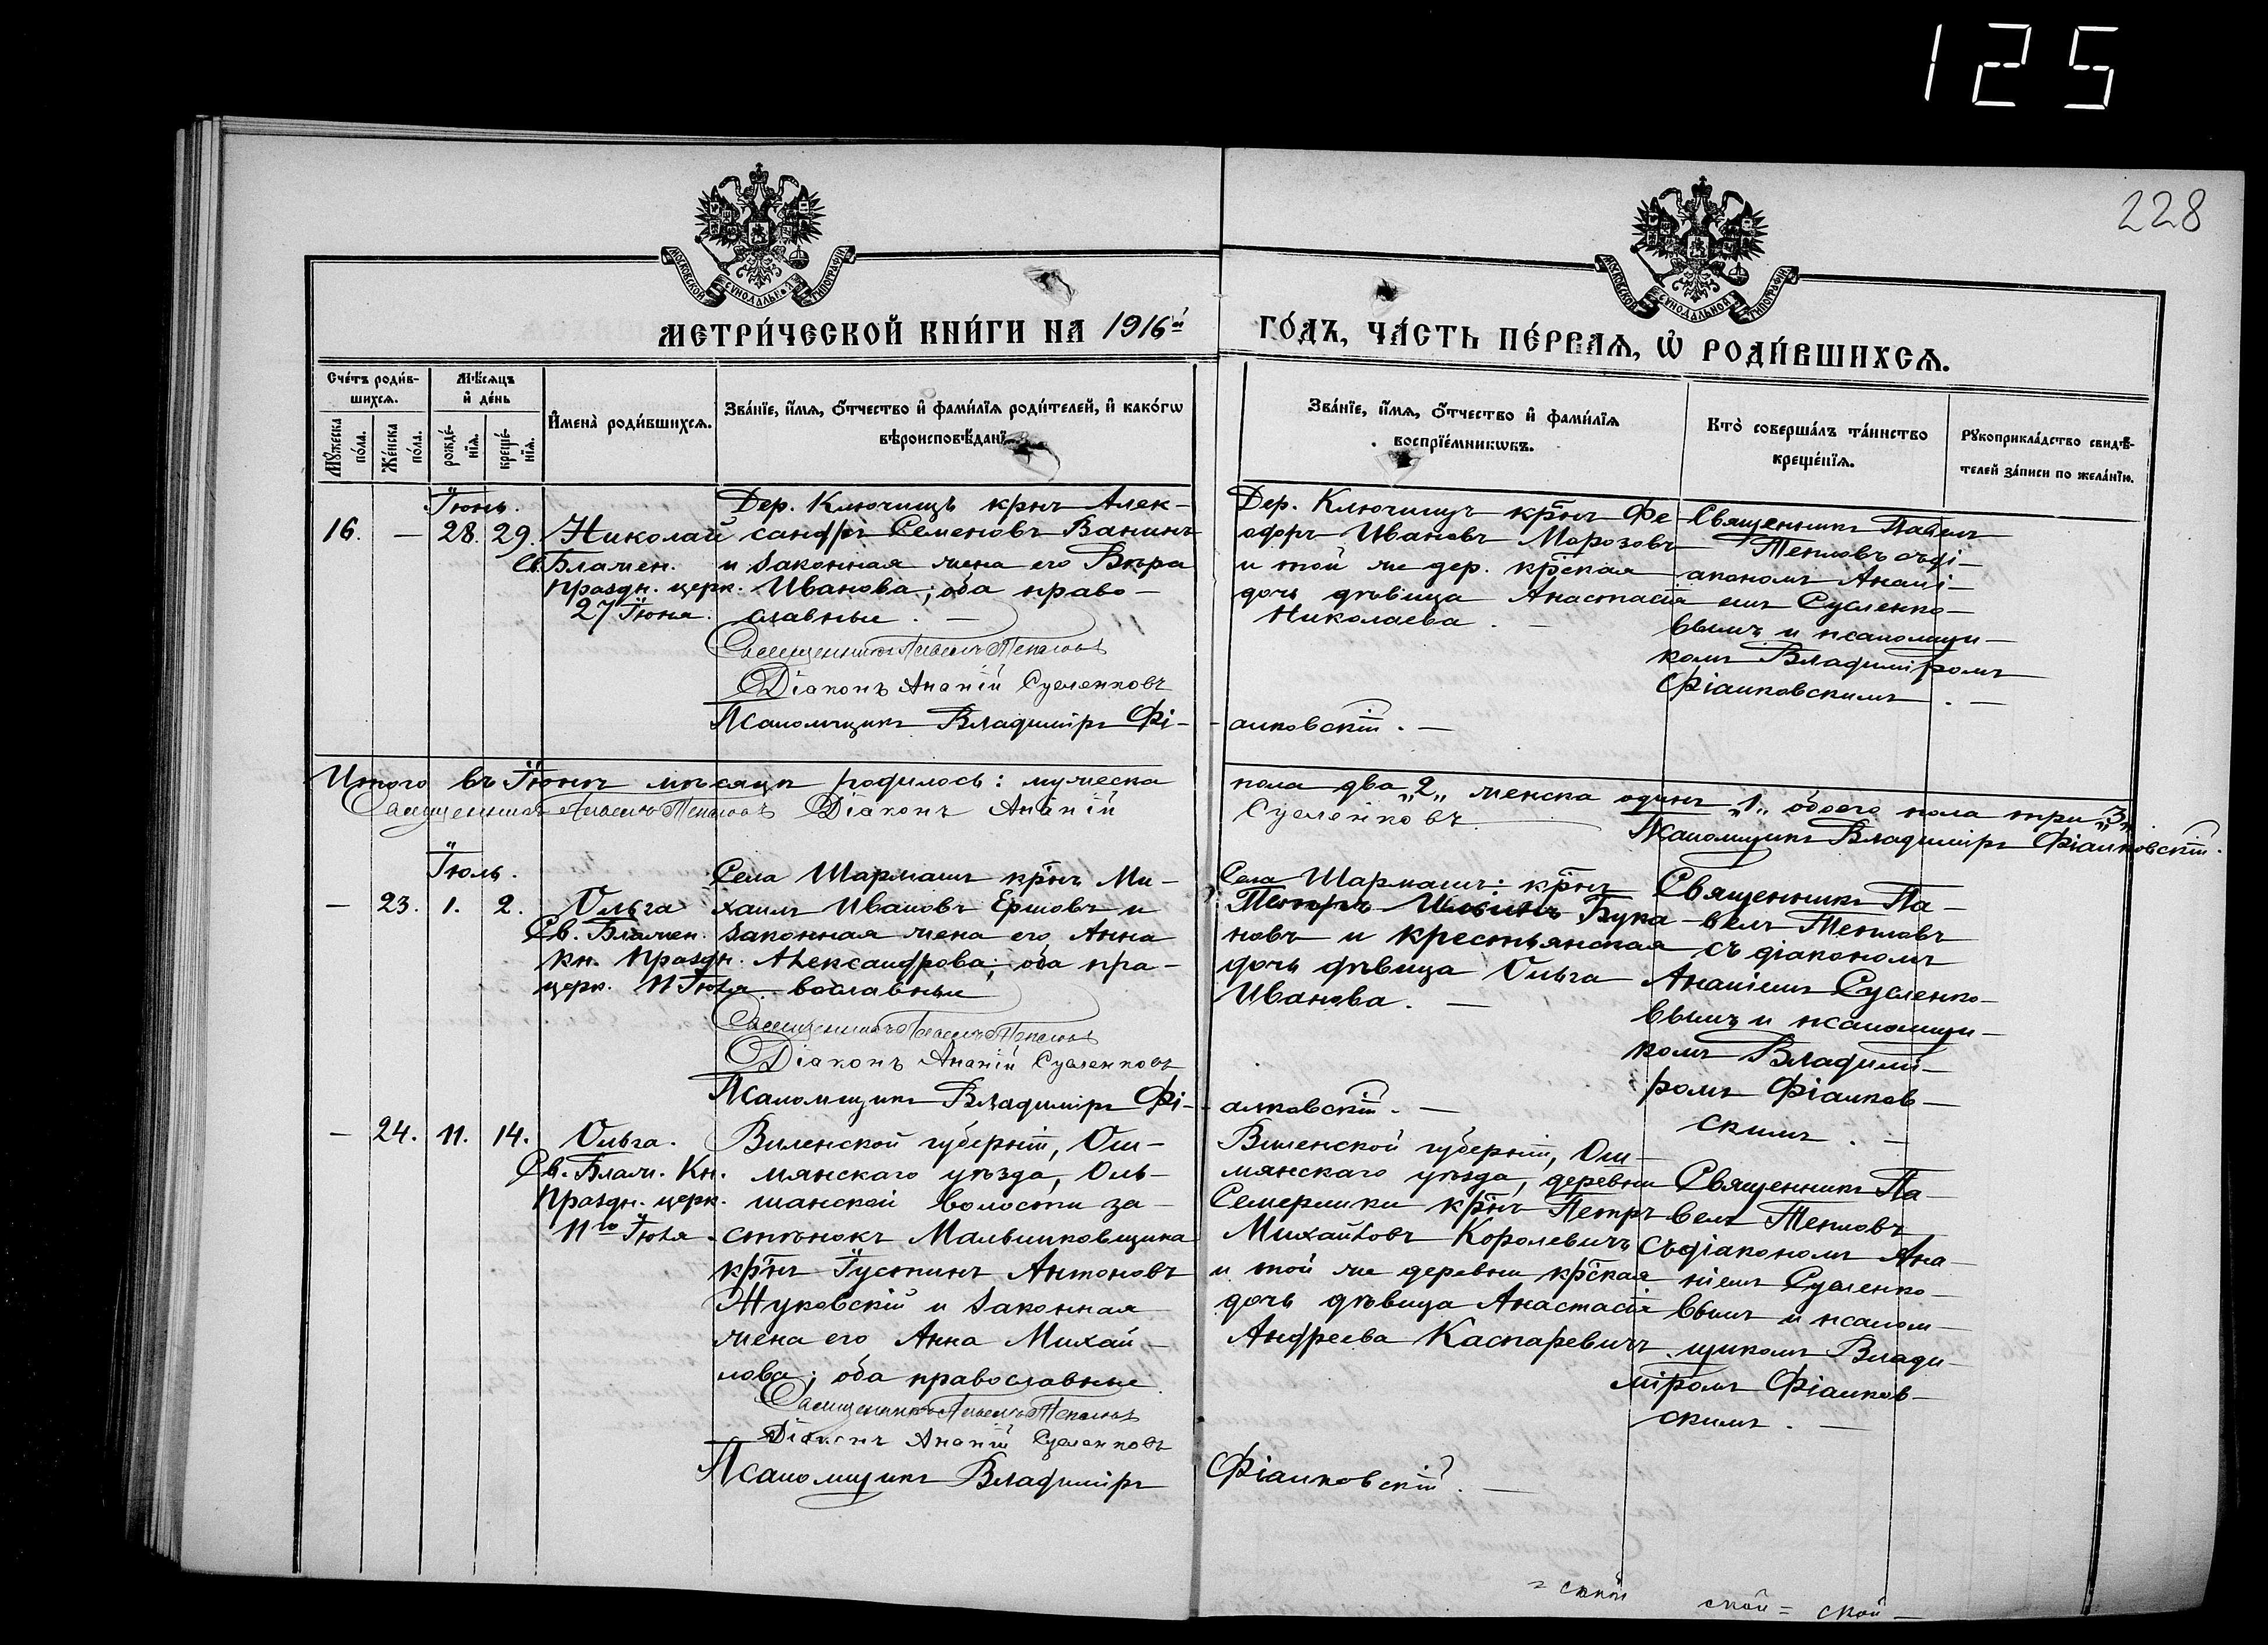 125
228
МОСКОВСКОЙ СѴНОДАЛЬНОЙ ТИПОГРАФІИ
МОСКОВСКОЙ СѴНОДАЛЬНОЙ ТИПОГРАФІИ
МЕТРИ́ЧЕСКОЙ КНИ́ГИ НА 1916й
ГО́ДЪ, ЧА́СТЬ ПЕ́РВАѦ, Ѡ҆ РОДИ́ВШИХСѦ.
Сче́тъ роди́в-
шихсѧ.
Мꙋ́жеска
по́ла.
Же́нска
по́ла.
Мѣ́сѧцъ
и҆ де́нь
рожде́-
нїѧ.
креще́-
нїѧ.
И҆мена̀ роди́вшихсѧ.
Зва́нїе, и҆́мѧ, ѻ҆́тчество и҆ фами́лїѧ роди́телей, и҆ како́гѡ
вѣроисповѣ́данїѧ.
Зва́нїе, и҆́мѧ, ѻ҆́тчество и҆ фами́лїѧ
воспрїе́мникѡвъ.
Кто̀ соверша́лъ та́инство
креще́нїѧ.
Рꙋкоприкла́дство свидѣ́-
телей за́писи по жела́нїю.
Іюнь.
16. — 28. 29. Николай
Св. Благмен.
праздн. церк.
27 Іюня.
Дер. Ключищъ крнъ Алек-
сандръ Семеновъ Ванинъ
и законная жена его Вѣра
Иванова; оба право-
славные. —
Священникъ Павелъ Тепловъ
Діаконъ Ананій Сусленковъ
Псаломщикъ Владиміръ Фі-
Дер. Ключищъ крнъ Фе
одоръ Ивановъ Морозовъ
и той же дер. крская
дочь дѣвица Анастасія
Николаева. —
алковскій. —
Священникъ Павелъ
Тепловъ съ ді-
акономъ Анані-
емъ Сусленко-
вымъ и псаломщи-
комъ Владиміромъ
Фіалковскимъ. —
Итого въ Іюнѣ мѣсяцѣ родилось: мужеска
пола два „2„ женска одинъ „1„ обоего пола три „3„
Священникъ Павелъ Тепловъ Діаконъ Ананій
Сусленковъ
Псаломщикъ Владиміръ Фіалковскій.
Іюль.
— 23. 1. 2. Ольга
Св. Благмен.
Кн. Праздн.
церк. 11 Іюля.
Села Шармашъ крнъ Ми-
хаилъ Ивановъ Ершовъ и
законная жена его Анна
Александрова; оба пра-
вославные
Священникъ Павелъ Тепловъ
Діаконъ Ананій Сусленковъ
Псаломщикъ Владиміръ Фі-
Села Шармашъ: крнъ
Петръ Ильинъ Бука-
новъ и крестьянская
дочь дѣвица Ольга
Иванова. —
алковскій. —
Священникъ Па-
велъ Тепловъ
съ діакономъ
Ананіемъ Сусленко-
вымъ и псаломщи-
комъ Владими-
ромъ Фіалков-
скимъ. —
— 24. 11. 14. Ольга.
Св. Благ. Кн.
Праздн. церк.
11го Іюля.
Виленской губерніи, Ош-
мянскаго уѣзда, Оль-
шанской волости за-
стѣнокъ Мальшиковщина
крнъ Іустинъ Антоновъ
Жуковскій и законная
жена его Анна Михай-
лова; оба православные.
Священникъ Павелъ Тепловъ
Діаконъ Ананій Сусленковъ
Псаломщикъ Владиміръ
Виленской губерніи, Ош-
мянскаго уѣзда, деревни
Семершки крнъ Петръ
Михайловъ Королевичъ
и той же деревни крская
дочь дѣвица Анастасія
Андреева Каспаревичъ.
Фіалковскій. —
Священникъ Па-
велъ Тепловъ
съ діакономъ Ана-
ніемъ Сусленко-
вымъ и псалом-
щикомъ Влади-
міромъ Фіалков-
скимъ. —
= ской ской = ской —